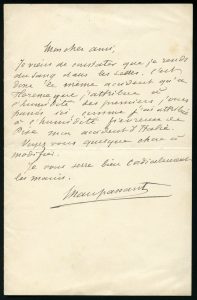 Mon cher ami,
Je viens de constater que je rends
du sang dans les selles. C'est
donc le même accident qu'à
Florence que j'attribue à
l'humidité des premiers jours
passés ici comme j'ai attribué
à l'humidité fiévreuse de
Pise mon accident d'Italie.
Voyez-vous quelque chose à
modifier.
Je vous serre bien cordialement
les mains.
Maupassant